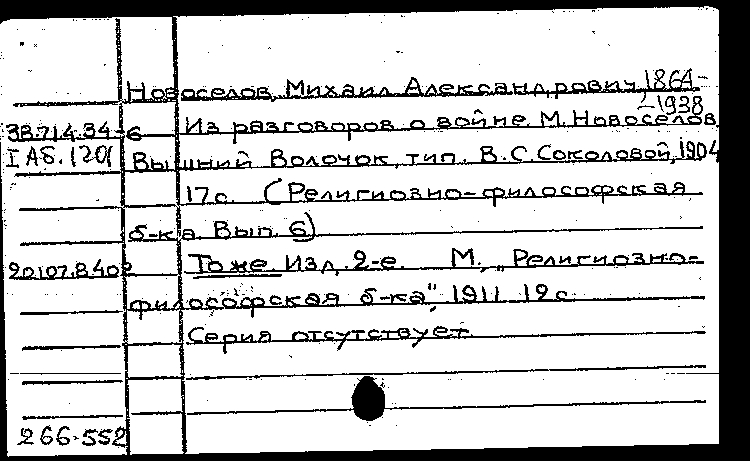 Новоселов, Михаил Александрович, 1864-
-1938
38.714.34-6 Из разговоров о войне. М. Новоселов
I AS. 1201 Вышний Волочок, тип. В.С. Соколовой, 1904
17с. (Религиозно-философская
б-ка. Вып. 6)
20.107.8.402 То же. Изд. 2-е. М., „Религиозно-
философская б-ка", 1911 19с.
Серия отсутствует
266-552